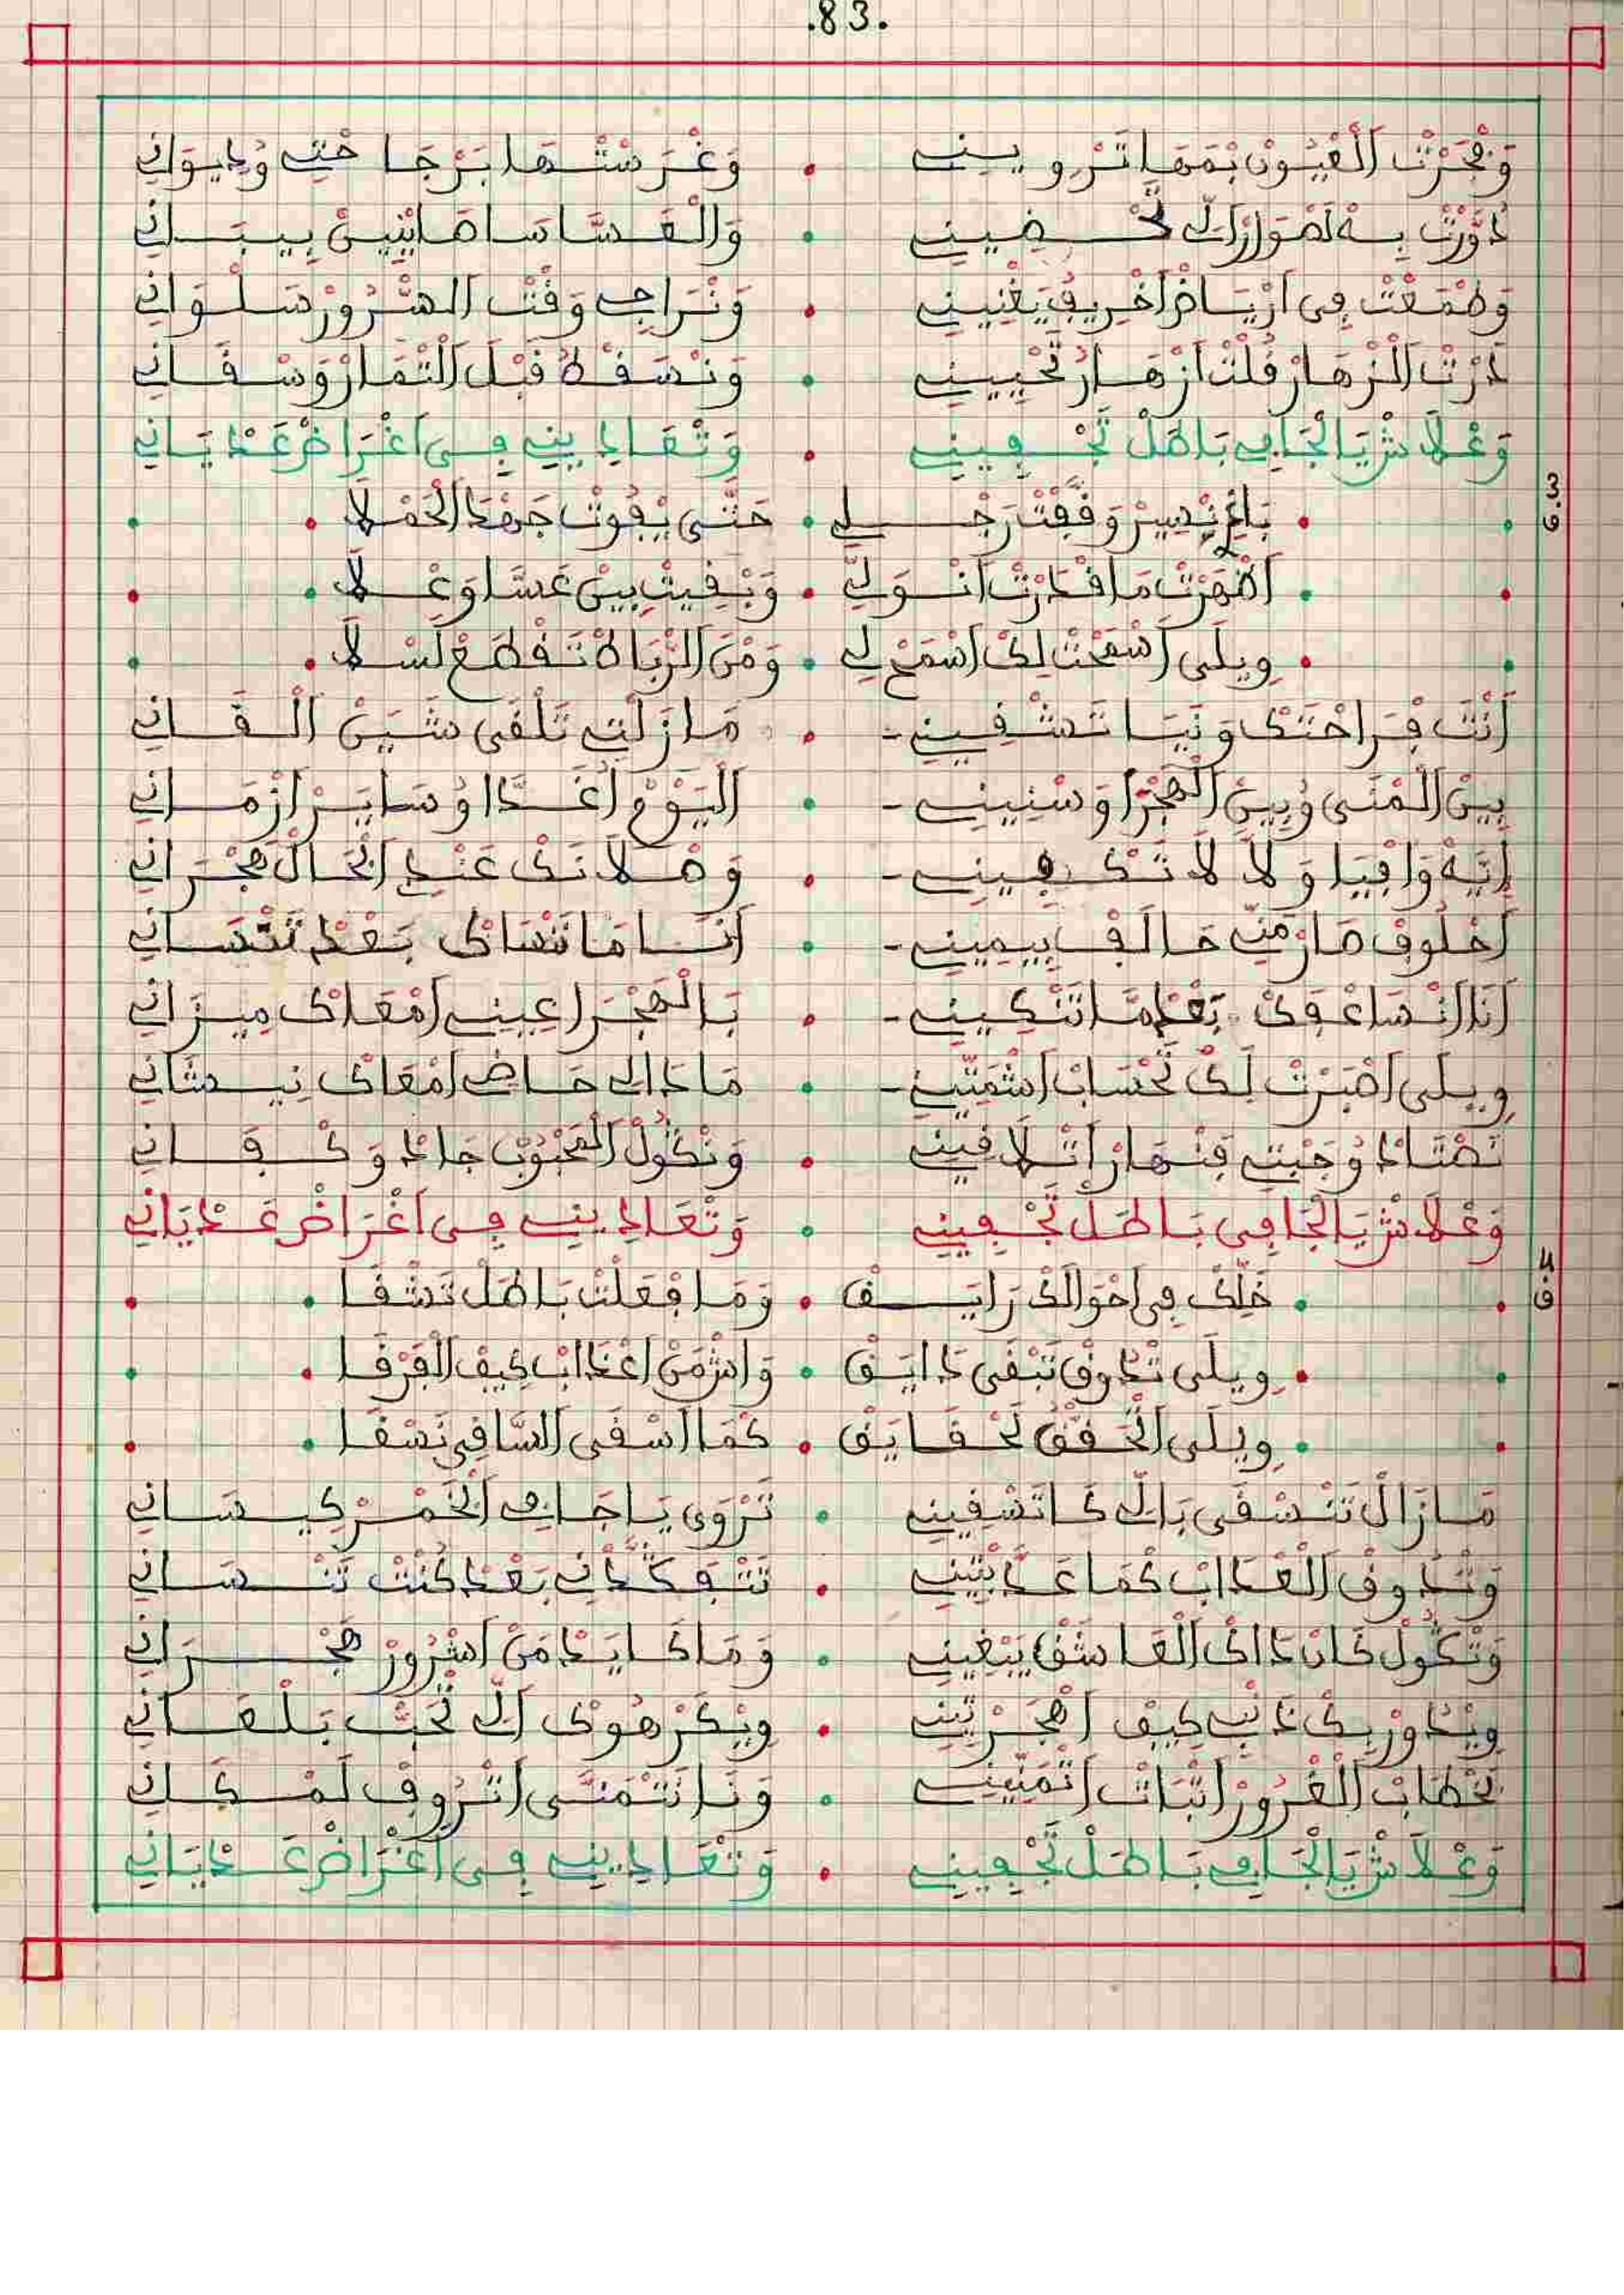 .83.
وَفَجَّرْتْ الْعْيُونْ بْمَهَا تَرْوِينِي • وَغَرَسْتْهَا بَرْجَا حْتِي وُدِيوَانِي
دَوَّرْتْ بِهْ لَصْوَارْ الِّي تَحْضِينِي • وَالْعَسَّاسَا صَايْنِينْ بِيبَانِي
وَطْمَعْتْ فِي ارْيَاضْ اخْرِيفُ يَغْنِينِي • وَنْرَاجِي وَقْتْ السْرُورْ سَلْوَانِي
دَرْتْ الزْهَارْ قُلْتْ ازْهَارُ تَحْيِينِي • وَنْسَقْطُ قْبَلْ التْمَارْ وَسْقَانِي
وَعْلَاشْ يَا الْجَافِي بَاطَلْ تَجْفِينِي • وَتْعَادِينِي فِي اغْرَاضْ عَدْيَانِي
3
ف
• • بَاغِي نْسِيرْ وَقَفْتْ رَجْلِي • حَتَّى يْفُوتْ جَهْدْ الْحَمْلَا • •
• • اظْهَرْتْ مَا قْدَرْتْ انْوَلِّي • وَبْقِيتْ بِينْ عَسَّا وَعْلَا • •
• • وِيلَى اسْمَحْتْ لِكْ اسْمَحْ لِي • وَمْنَ الرْبَاطْ تَقْطَعْ لَسْلَا • •
أَنْتَ فْرَاحْتَكْ وَنَيَا تَشْفِينِي - • مَا زَلْتِي تَلْقَى شَيَنْ الْقَانِي
بِينْ الْمْنَى وُبِينْ الْهَجْرَا وَسْنِينِي - • الْيَوْمْ اغَدَّا اوُسَايَرْ ازْمَانِي
إِيَّهْ وَافْيَا وَلَا لَا تَكْفِينِي - • وَصْلَانَكْ عَنْدِي الْحَالْ هَجْرَانِي
أَخْلُوقْ صَارْ مَنِّي حَالَفْ بِيمِينِي - • أَنَا مَا نَنْسَاكْ بَعْدْ تَنْسَانِي
أَنَا انْسَاعْفَكْ بَعْدْمَا تَنْكِينِي - • بَالْهَجْرَا عِينِي امْعَاكْ مِيزَانِي
وِيلَى اصْبَرْتْ لَكْ تَحْسَابْ اشْمَتِّينِي - • مَادَا لِي حَاضِي امْعَاكْ نِيشَانِي
تَصْتَادْ وُجَبْتِي فَنْهَارْ اتْلَاقِينِي • وَنْكُولْ الْمَحْبُوبْ جَادْ وَكْفَانِي
وَعْلَاشْ يَا الْجَافِي بَاطَلْ تَجْفِينِي • وَتْعَادِينِي فِي اغْرَاضْ عَدْيَانِي
4
ف
• • خَلِّكْ فِي احْوَالَكْ رَايَقْ • وَمَا فْعَلْتْ بَاطَلْ تَشْقَا • •
• • وِيلَى تْدُوقْ تَبْقَى دَايَقْ • وَاشْ مَنْ اعْدَابْ كِيفْ الْفَرْقَا • •
• • وِيلَى اتْحَقَّقْ لَحْقَايَقْ • كْمَا اسْقَى السَّاقِي نَسْقَا • •
مَا زَالْ تَنْسْقَى بَالِّي كَا تَسْقِينِي • تَرْوَى يَا جَافِي الْخَمْرْ كِيسَانِي
وَتْدُوقْ الْعْدَابْ كْمَا عَدَّبْتِينِي • تَتْفَكَّدْنِي بَعْدْ كُنْتْ تَنْسَانِي
وَتْكُولْ كَانْ دَاكْ الْعَاشَقْ يَبْغِينِي • وَمَا كَايَدْ مَنْ اشْرُورْ هَجْرَانِي
وِيْدَاوْرْ بِكْ دَنْبِي كِيفْ اهْجَرْتِينِي • وِيْكَرْهُوكْ الِّي تْحَبْ بَلْعَانِي
بَخْطَابْ الْغْرُورْ اتْبَاتْ اتْمَنِّينِي • وَنَا نَتْمَنَّى اتْرُوفْ لَمْكَانِي
وَعْلَاشْ يَا الْجَافِي بَاطَلْ تَجْفِينِي • وَتْعَادِينِي فِي اغْرَاضْ عَدْيَانِي